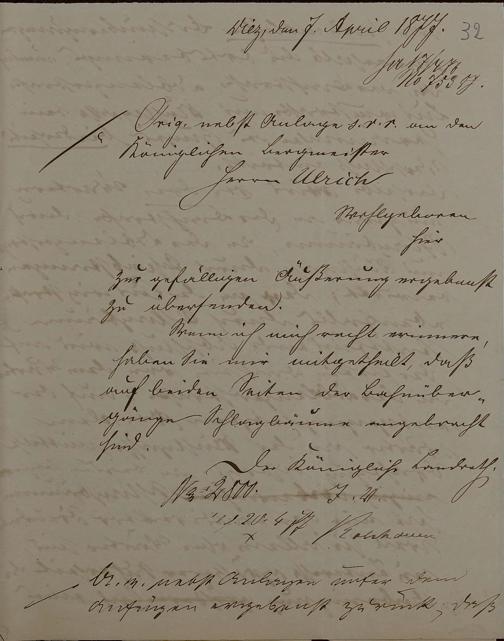 Diez, den 7. April 1877.
32
No 753
Orig. nebst Anlage s. v. r. an den
Königlichen Bergmeister
Herrn Ulrich
Wohlgeboren
hier
zur gefälligen Äußerung ergebenst
zu übersenden.
Wenn ich mich recht erinnere,
haben Sie mir mitgetheilt, daß
auf beiden Seiten der Bahnüber-
gänge Schlagbäume angebracht
sind.
Der Königliche Landrath.
No 2800. J. V.
20. 4
U. m. nebst Anlagen unter dem
Anfügen ergebenst zurück, daß